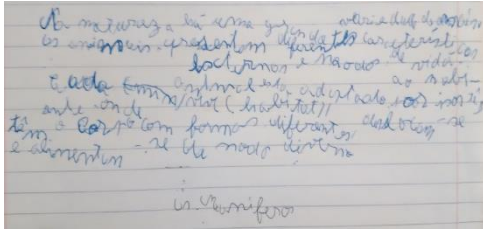 Na natureza há uma grande variedade de
os animais apresentam diferentes características
externas e modos de vida.
Cada animal está adaptado ao
ambiente onde vive (habitat)
têm o corpo com formas diferentes, deslocam-se
e alimentam-se de modo diverso